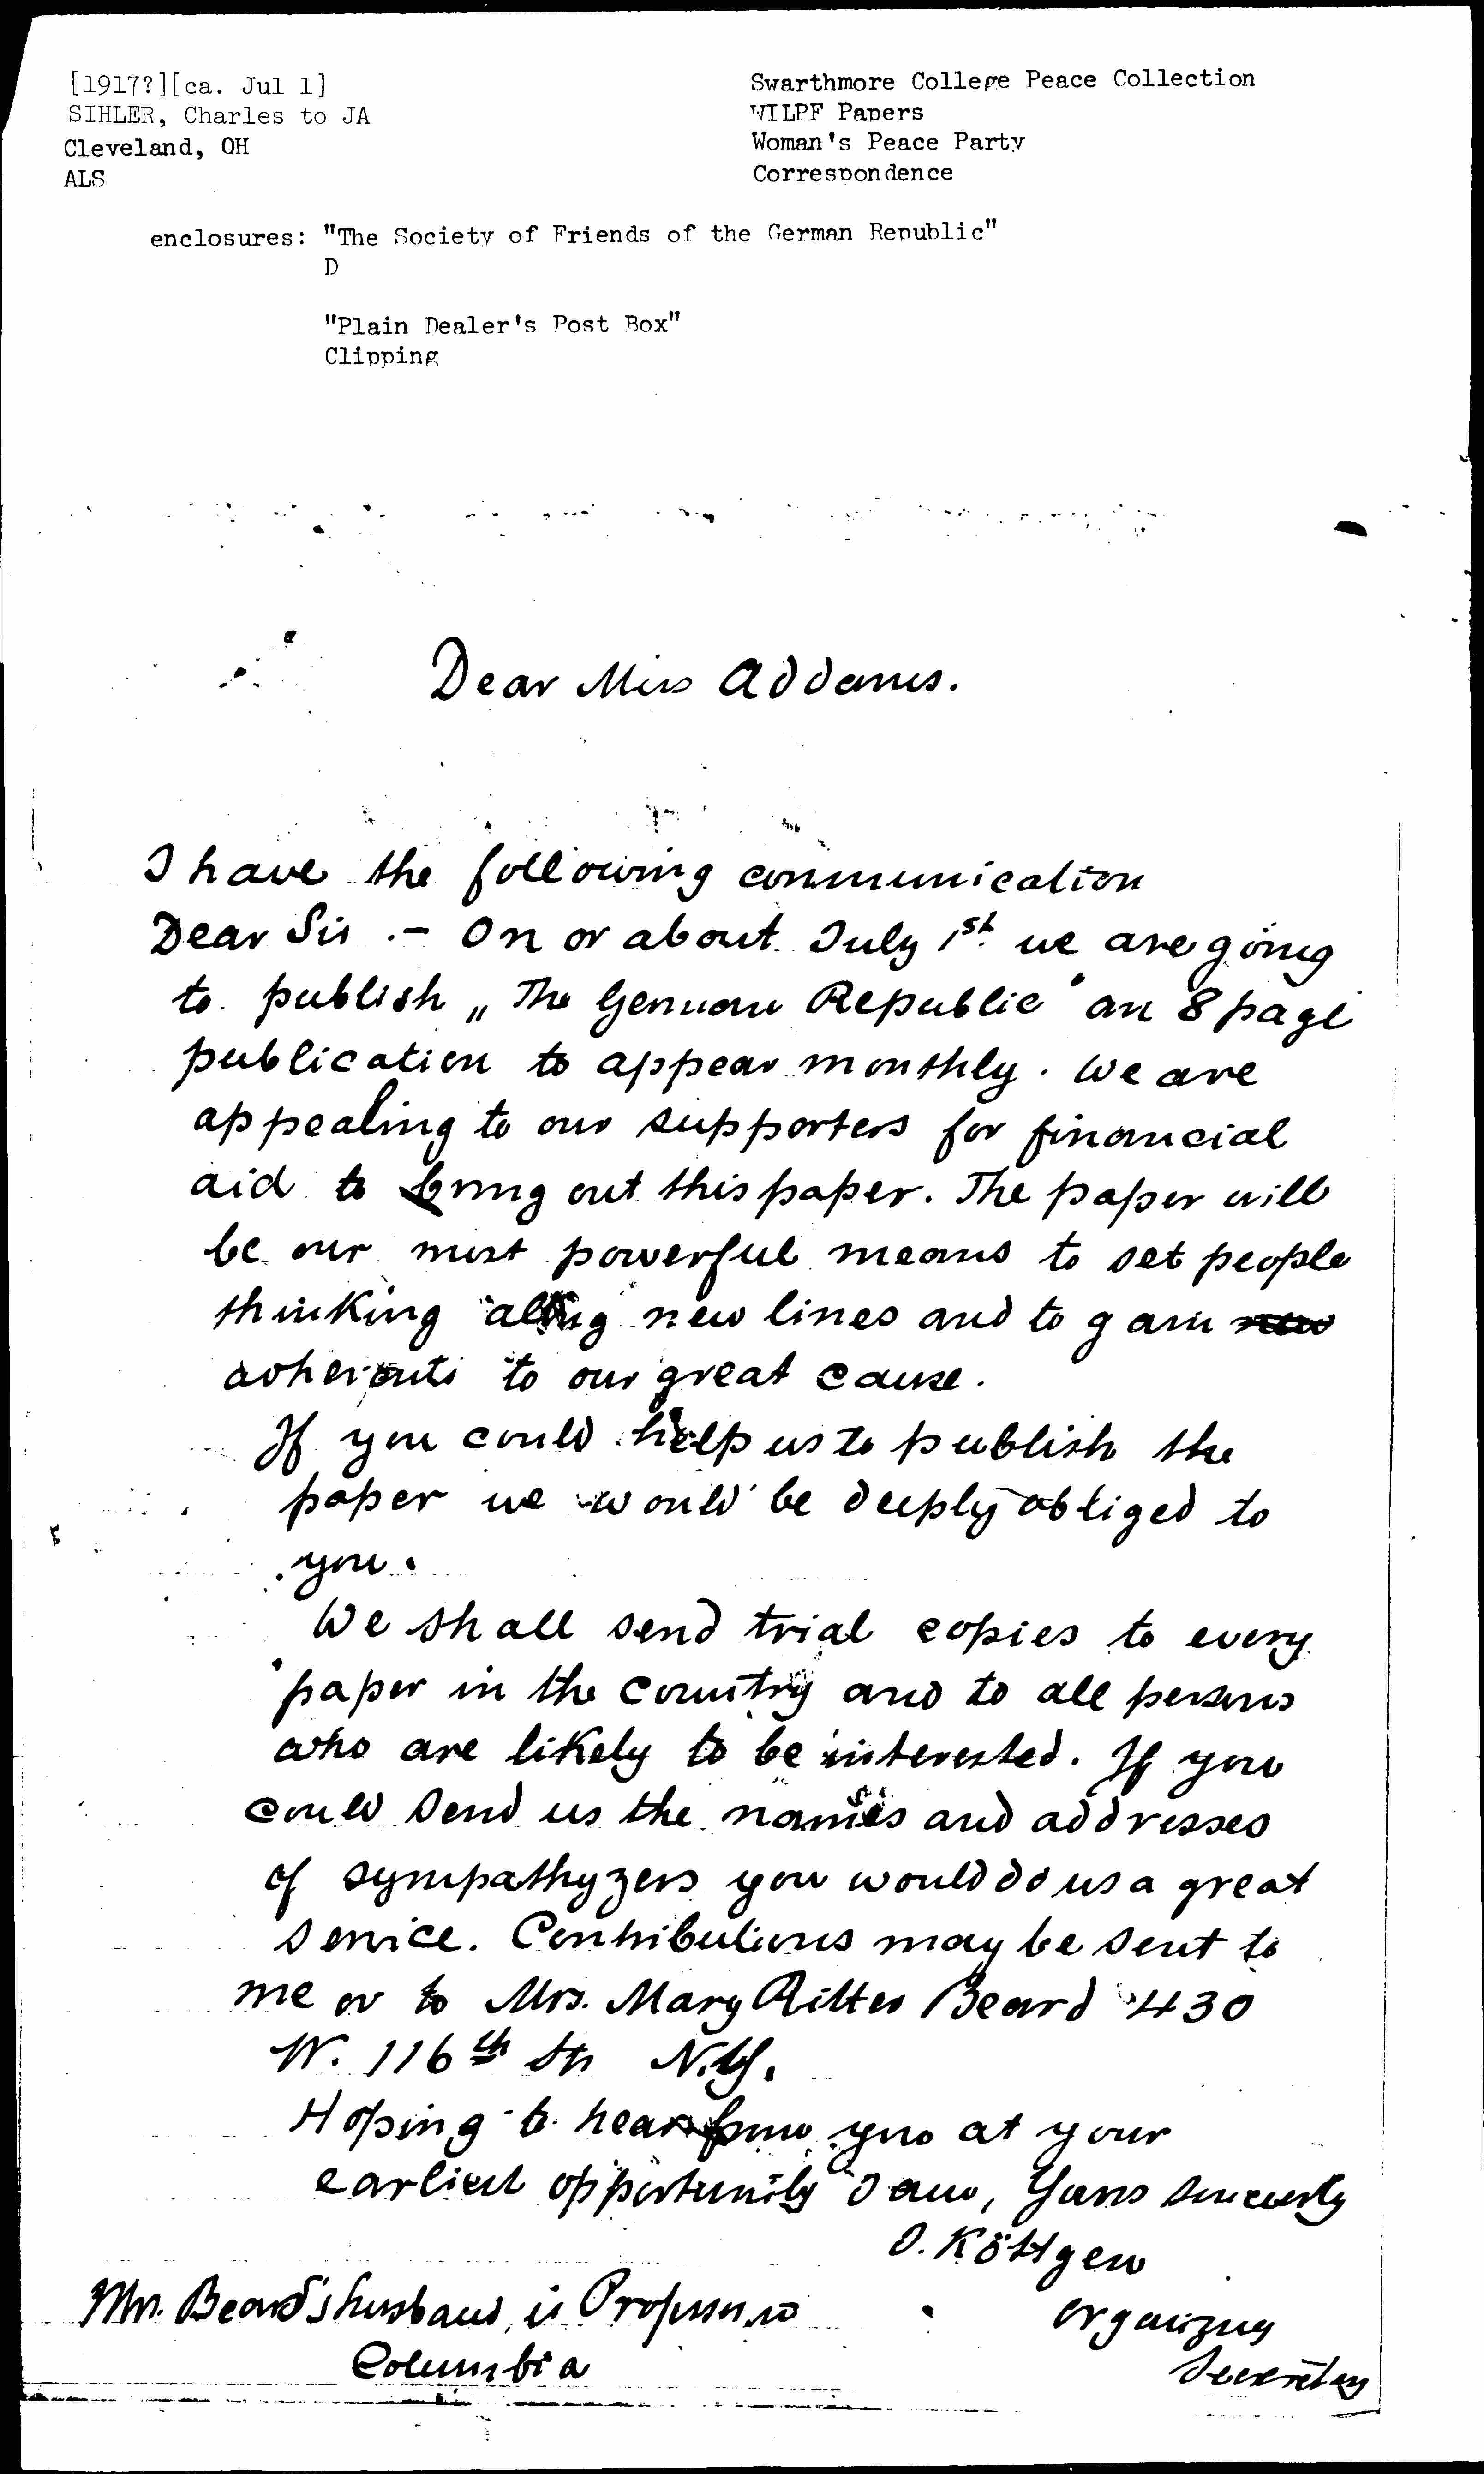 [1917?][ca. Jul 1]
SIHLER, Charles to JA
Cleveland, OH
ALS
Swarthmore College Peace Collection
WILPF Papers
Woman's Peace Party
Correspondence
enclosures: "The Society of Friends of the German Republic"
D
"Plain Dealer's Post Box"
Clipping
Dear Miss Addams.
I have the following communication
Dear Sir .- On or about July 1st we are going
to publish „The German Republic" an 8 page
publication to appear monthly. We are
appealing to our supporters for financial
aid to bring out this paper. The paper will
be our most powerful means to set people
thinking along new lines and to gain new
adherents to our great cause.
If you could help us to publish the
paper we would be deeply obliged to
you.
We shall send trial copies to every
paper in the country and to all persons
who are likely to be interested. If you
could send us the names and addresses
of sympathyzers you would do us a great
service. Contributions may be sent to
me or to Mrs. Mary Ritter Beard 430
W. 116th Str N.Y.
Hoping to hear from you at your
earliest opportunity I am, Yours sincerely
O. Köttgen
organizing
Secretary
Mrs. Beard's husband is Professor
Columbia